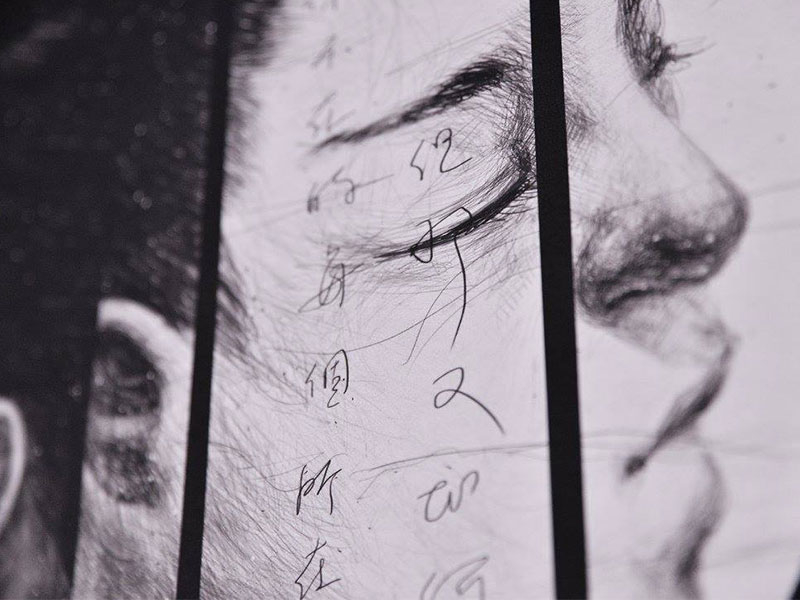 但那又如何
不在的每個所在